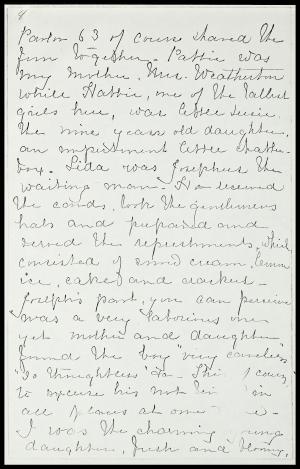 Parlor 63 of course shared the
fun together. Pattie was
my mother. Mrs. Weatherton
while Hattie, one of the tallest
girls here, was little Susie
the nine years old daughter,
an impertinent little chatter-
box. Lida was Josephus the
waiting man. He received
the cards, took the gentlemens
hats and prepared and
served the refreshments, which
consisted of snow cream, lemon
ice, cakes and crackers.
Joseph's part, you can perceive
was a very laborious one
yet mother and daughter
found the boy "very careless"
"so thoughtless"
to excuse his not being in
all places at one
I was the charming young
daughter, fresh and blooming,